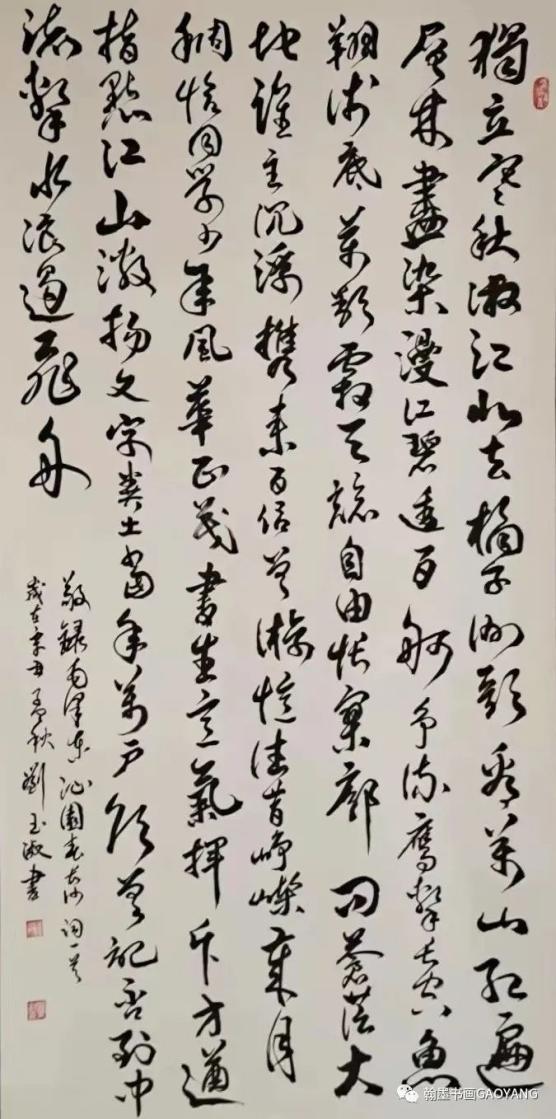 獨立寒秋湘江北去橘子洲頭看萬山紅遍
層林盡染漫江碧透百舸争流鷹擊長空魚
翔淺底萬類霜天競自由悵寥廓问蒼茫大
地誰主沉浮攜来百侣曾游憶往昔崢嶸歲月
稠恰同学少年風華正茂書生意氣揮斥方遒
指點江山激揚文字粪土当年萬户侯曾記否到中
流擊水浪遏飛舟
敬録毛澤東沁園春長沙词一首
歲在辛丑孟秋劉玉淑書
翰墨书画GAOYANG